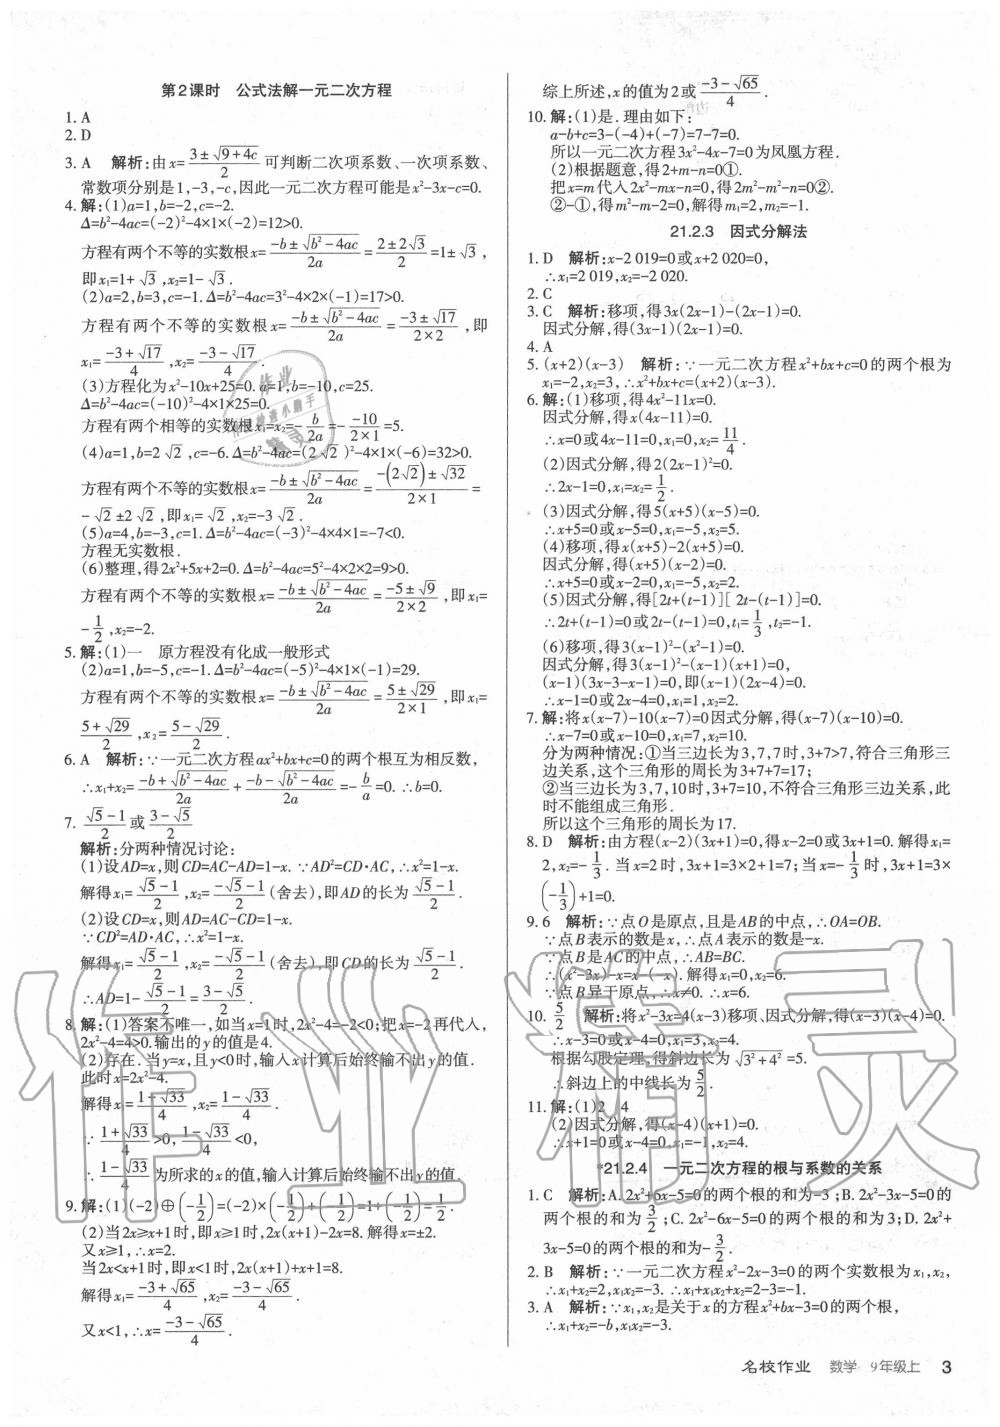 第2课时　公式法解一元二次方程
1. A
2. D
3. A　解析:由x=(3±√(9+4c))/2 可判断二次项系数、一次项系数、
常数项分别是1,-3,-c,因此一元二次方程可能是x²-3x-c=0.
4. 解:(1)a=1,b=-2,c=-2.
Δ=b²-4ac=(-2)²-4×1×(-2)=12>0.
方程有两个不等的实数根x=(-b±√(b²-4ac))/2a=(2±2√3)/2=1±√3,
即x₁=1+√3,x₂=1-√3.
(2)a=2,b=3,c=-1.Δ=b²-4ac=3²-4×2×(-1)=17>0.
方程有两个不等的实数根x=(-b±√(b²-4ac))/2a=(-3±√17)/(2×2),即
x₁=(-3+√17)/4,x₂=(-3-√17)/4.
(3)方程化为x²-10x+25=0.a=1,b=-10,c=25.
Δ=b²-4ac=(-10)²-4×1×25=0.
方程有两个相等的实数根x₁=x₂=-b/2a=-(-10)/(2×1)=5.
(4)a=1,b=2√2,c=-6.Δ=b²-4ac=(2√2)²-4×1×(-6)=32>0.
方程有两个不等的实数根x=(-b±√(b²-4ac))/2a=(-(2√2)±√32)/(2×1)=
-√2±2√2,即x₁=√2,x₂=-3√2.
(5)a=4,b=-3,c=1.Δ=b²-4ac=(-3)²-4×4×1=-7<0.
方程无实数根.
(6)整理,得2x²+5x+2=0.Δ=b²-4ac=5²-4×2×2=9>0.
方程有两个不等的实数根x=(-b±√(b²-4ac))/2a=(-5±√9)/(2×2),即x₁=
-1/2,x₂=-2.
5. 解:(1)一　原方程没有化成一般形式
(2)a=1,b=-5,c=-1.Δ=b²-4ac=(-5)²-4×1×(-1)=29.
方程有两个不等的实数根x=(-b±√(b²-4ac))/2a=(5±√29)/2,即x₁=
(5+√29)/2,x₂=(5-√29)/2.
6. A　解析:∵一元二次方程ax²+bx+c=0的两个根互为相反数,
∴x₁+x₂=(-b+√(b²-4ac))/2a+(-b-√(b²-4ac))/2a=-b/a=0.∴b=0.
7. (√5-1)/2或(3-√5)/2
解析:分两种情况讨论:
(1)设AD=x,则CD=AC-AD=1-x.∵AD²=CD·AC,∴x²=1-x.
解得x₁=(√5-1)/2,x₂=(-√5-1)/2(舍去),即AD的长为(√5-1)/2.
(2)设CD=x,则AD=AC-CD=1-x.
∵CD²=AD·AC,∴x²=1-x.
解得x₁=(√5-1)/2,x₂=(-√5-1)/2(舍去),即CD的长为(√5-1)/2.
∴AD=1-(√5-1)/2=(3-√5)/2.
8. 解:(1)答案不唯一,如当x=1时,2x²-4=-2<0;把x=-2再代入,
2x²-4=4>0.输出的y的值是4.
(2)存在.当y=x,且y<0时,输入x计算后始终输不出y的值.
此时x=2x²-4.
解得x₁=(1+√33)/4,x₂=(1-√33)/4.
∵(1+√33)/4>0,(1-√33)/4<0,
∴(1-√33)/4为所求的x的值,输入计算后始终输不出y的值.
9. 解:(1)(-2)⊕(-1/2)=(-2)×(-1/2)+(-1/2)=1-1/2=1/2.
(2)当2x≥x+1时,即x≥1时,2x(x+1)-2x=8.解得x=±2.
又x≥1,∴x=2.
当2x<x+1时,即x<1时,2x(x+1)+x+1=8.
解得x₁=(-3+√65)/4,x₂=(-3-√65)/4.
又x<1,∴x=(-3-√65)/4.
综上所述,x的值为2或(-3-√65)/4.
10. 解:(1)是.理由如下:
a-b+c=3-(-4)+(-7)=7-7=0.
所以一元二次方程3x²-4x-7=0为凤凰方程.
(2)根据题意,得2+m-n=0①.
把x=m代入2x²-mx-n=0,得2m²-m²-n=0②.
②-①,得m²-m-2=0,解得m₁=2,m₂=-1.
21.2.3　因式分解法
1. D　解析:x-2 019=0或x+2 020=0,
∴x₁=2 019,x₂=-2 020.
2. C
3. C　解析:移项,得3x(2x-1)-(2x-1)=0.
因式分解,得(3x-1)(2x-1)=0.
4. A
5. (x+2)(x-3)　解析:∵一元二次方程x²+bx+c=0的两个根为
x₁=-2,x₂=3,∴x²+bx+c=(x+2)(x-3).
6. 解:(1)移项,得4x²-11x=0.
因式分解,得x(4x-11)=0.
∴x=0或4x-11=0,x₁=0,x₂=11/4.
(2)因式分解,得2(2x-1)²=0.
∴2x-1=0,x₁=x₂=1/2.
(3)因式分解,得5(x+5)(x-5)=0.
∴x+5=0或x-5=0,x₁=-5,x₂=5.
(4)移项,得x(x+5)-2(x+5)=0.
因式分解,得(x+5)(x-2)=0.
∴x+5=0或x-2=0,x₁=-5,x₂=2.
(5)因式分解,得[2t+(t-1)][2t-(t-1)]=0.
∴2t+(t-1)=0或2t-(t-1)=0,t₁=1/3,t₂=-1.
(6)移项,得3(x-1)²-(x²-1)=0.
因式分解,得3(x-1)²-(x-1)(x+1)=0,
(x-1)(3x-3-x-1)=0,即(x-1)(2x-4)=0.
∴x-1=0或2x-4=0,x₁=1,x₂=2.
7. 解:将x(x-7)-10(x-7)=0因式分解,得(x-7)(x-10)=0.
∴x-7=0或x-10=0,x₁=7,x₂=10.
分为两种情况:①当三边长为3,7,7时,3+7>7,符合三角形三
边关系,这个三角形的周长为3+7+7=17;
②当三边长为3,7,10时,3+7=10,不符合三角形三边关系,此
时不能组成三角形.
所以这个三角形的周长为17.
8. D　解析:由方程(x-2)(3x+1)=0,得x-2=0或3x+1=0.解得x₁=
2,x₂=-1/3.当x=2时,3x+1=3×2+1=7;当x=-1/3时,3x+1=3×
(-1/3)+1=0.
9. 6　解析:∵点O是原点,且是AB的中点,∴OA=OB.
∵点B表示的数是x,∴点A表示的数是-x.
∵点B是AC的中点,∴AB=BC.
∴(x²-3x)-x=x-(-x).解得x₁=0,x₂=6.
∵点B异于原点,∴x≠0.∴x=6.
10. 5/2　解析:将x²-3x=4(x-3)移项、因式分解,得(x-3)(x-4)=0.
∴x-3=0或x-4=0,x₁=3,x₂=4.
根据勾股定理,得斜边长为√(3²+4²)=5.
∴斜边上的中线长为5/2.
11. 解:(1)2　4
(2)因式分解,得(x-4)(x+1)=0.
∴x+1=0或x-4=0,x₁=-1,x₂=4.
*21.2.4　一元二次方程的根与系数的关系
1. C　解析:A. 2x²+6x-5=0的两个根的和为-3;B. 2x²-3x-5=0的
两个根的和为3/2;C. 2x²-6x-5=0的两个根的和为3;D. 2x²+
3x-5=0的两个根的和为-3/2.
2. B　解析:∵一元二次方程x²-2x-3=0的两个实数根为x₁,x₂,
∴x₁+x₂=2,x₁x₂=-3.∴x₁+x₁x₂+x₂=2-3=-1.
3. A　解析:∵x₁,x₂是关于x的方程x²+bx-3=0的两个根,
∴x₁+x₂=-b,x₁x₂=-3.
名校作业　数学　9年级上　3
作业精灵